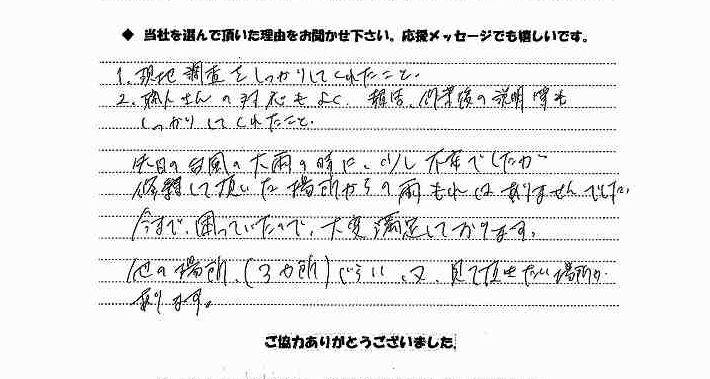 ◆ 当社を選んで頂いた理由をお聞かせ下さい。応援メッセージでも嬉しいです。
1. 現地調査をしっかりしてくれたこと。
2. 職人さんの対応もよく、報告、作業後の説明等も
しっかりしてくれたこと。
先日の台風の大雨の時に、少し不安でしたが
修理して頂いた場所からの雨もれはありませんでした。
今まで、困っていたので、大変満足しております。
他の場所、(3カ所)ぐらい、又、見て頂きたい場所が
あります。
ご協力ありがとうございました。